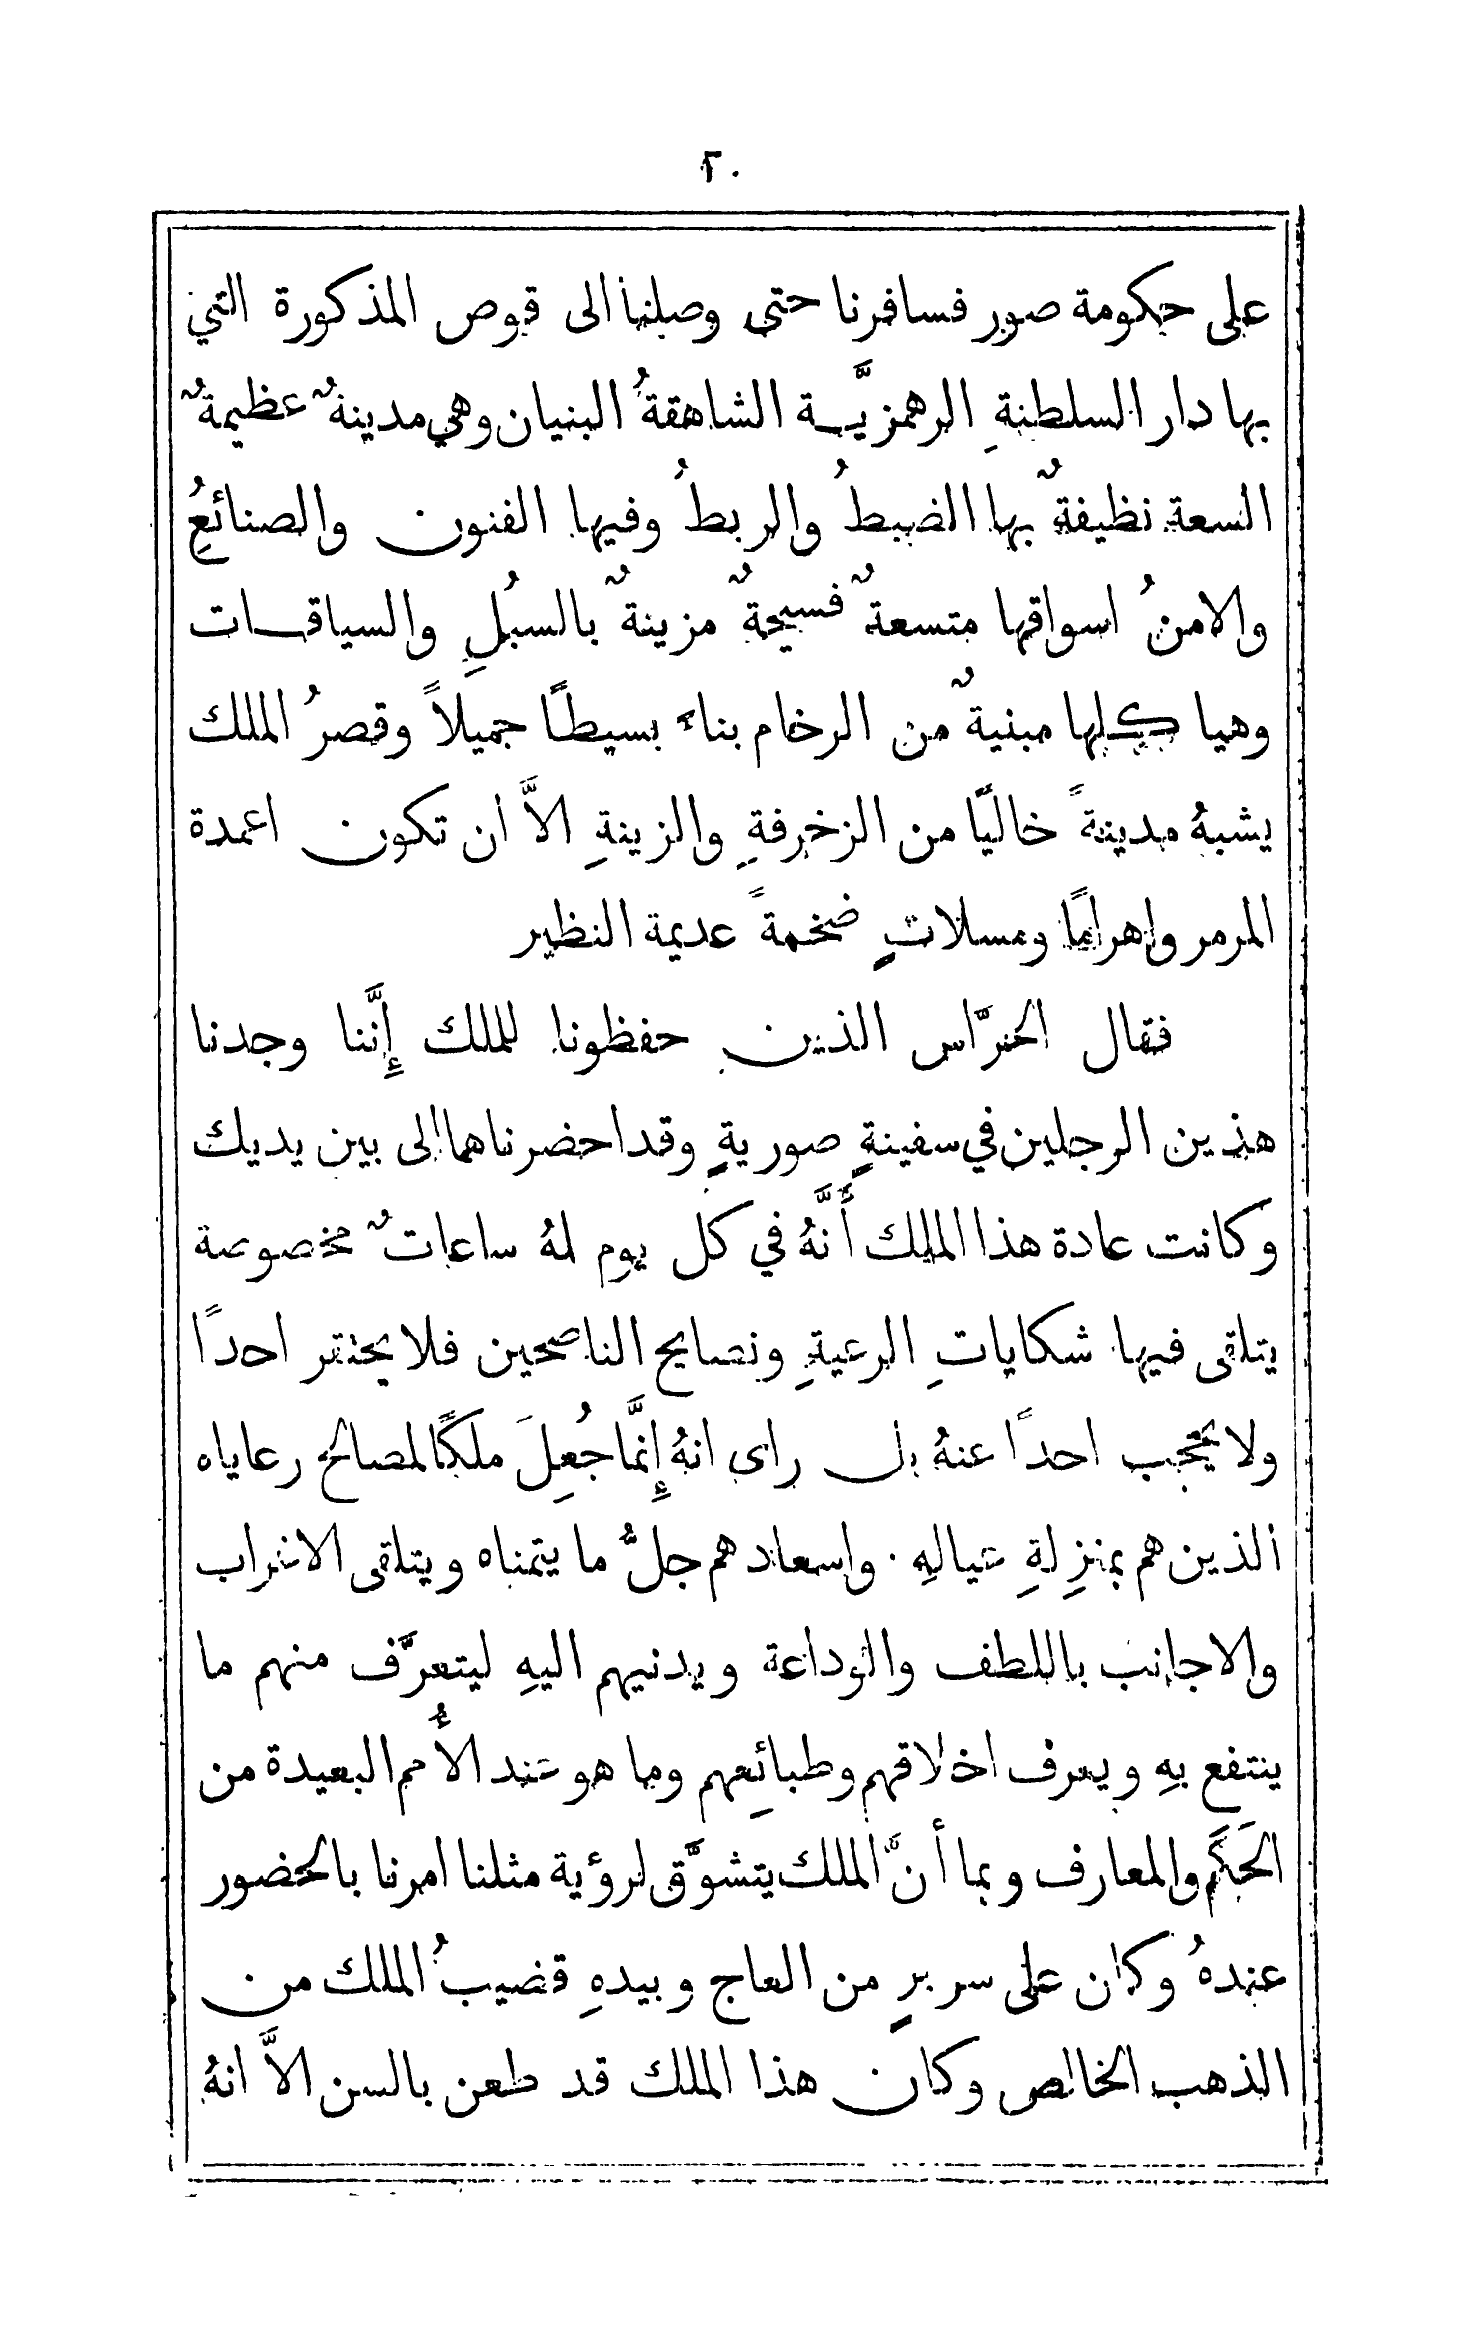 ٢٠
على حكومة صور فسافرنا حتى وصلنا الى قوص المذكورة التي
بها دار السلطنةِ الرهمزيَّة الشاهقةُ البنيان وهي مدينةٌ عظيمةٌ
السعة نظيفةٌ بها الضبطُ والربطُ وفيها الفنون والصنائعُ
والامنُ اسواقها متسعةٌ فسيحةٌ مزينةٌ بالسبُلِ والسياقات
وهيا كلها مبنيةٌ من الرخام بناء بسيطًا جميلاً وقصرُ الملك
يشبهُ مدينةً خاليًا من الزخرفةِ والزينةِ الاَّ ان تكون اعمدة
المرمر واهرامًا ومسلاتٍ ضخمةً عديمة النظير
فقال الحرَّاس الذين حفظونا للملك إِنَّنا وجدنا
هذين الرجلين في سفينةٍ صوريةٍ وقد احضرناهما الى بين يديك
وكانت عادة هذا الملك أَنَّهُ في كل يوم لهُ ساعاتٌ مخصوصة
يتلقى فيها شكاياتِ الرعيةِ ونصايح الناصحين فلا يحتقر احدًا
ولا يحجب احدًا عنهُ بل راى انهُ إِنمَّا جُعِلَ ملكًا لمصالح رعاياه
الذين هم بمنزِلةِ عيالهِ . واسعادهم جلُّ ما يتمناه ويتلقى الاغراب
والاجانب باللطف والوداعة ويدنيهم اليهِ ليتعرَّف منهم ما
ينتفع بهِ ويعرف اخلاقهم وطبائِعهم وما هو عند الأُمم البعيدة من
الحَكَم والمعارف وبما أنَّ الملك يتشوَّق لرؤية مثلنا امرنا بالحضور
عندهُ وكان على سريرٍ من العاج وبيدهِ قضيبُ الملك من
الذهب الخالص وكان هذا الملك قد طعن بالسن الاَّ انهُ